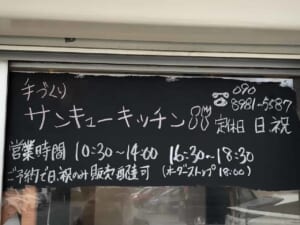 手づくり
サンキューキッチン
☎090
8981-5587
定休日 日.祝
営業時間 10:30~14:00 16:30~18:30
ご予約で日.祝のみ販売配達可 (オーダーストップ18:00)